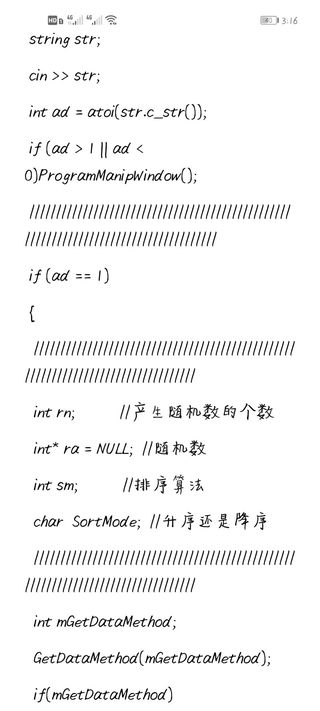 HD 4G 4G 3:16
string str;
cin >> str;
int ad = atoi(str.c_str());
if (ad > 1 || ad <
0)ProgramManipWindow();
/////////////////////////////////////////////////
////////////////////////////////////
if (ad == 1)
{
/////////////////////////////////////////////////
////////////////////////////////
int rn; //产生随机数的个数
int* ra = NULL; //随机数
int sm; //排序算法
char SortMode; //升序还是降序
/////////////////////////////////////////////////
////////////////////////////////
int mGetDataMethod;
GetDataMethod(mGetDataMethod);
if(mGetDataMethod)